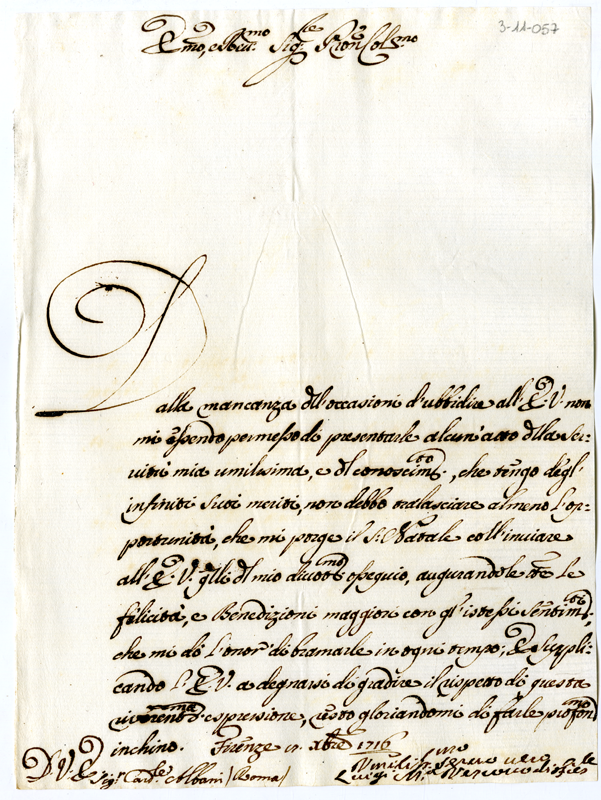 3-11-057
Em̃o, e Rev.mo Sig.re Pron Col.mo
Dalla mancanza dell'occasioni d'ubbidire all'E.V. non
mi essendo permesso di presentarle alcun'atto della Ser-
vitù mia umilissima, e del conoscim.to, che tengo degl'
infiniti Suoi meriti, non debbo tralasciare almeno l'op-
portunità, che mi porge il S. Natale coll'inviare
all'E.V. gl'atti del mio divotis.mo ossequio, augurandole tt.e le
felicità, e Benedizioni maggiori con gl'istessi Sentim.ti,
che mi dò l'onor di bramarle in ogni tempo; E Suppli-
cando l'E.V. a degnarsi di gradire il rispetto di questa
riverent.ma espressione, resto gloriandomi di farle profon.mo
inchino. Firenze xbre 1716
D.V.E.
Sig.r Card.le Albani (Roma)
Umiliss.mo Servo vero
Luigi M.a Vescovo di